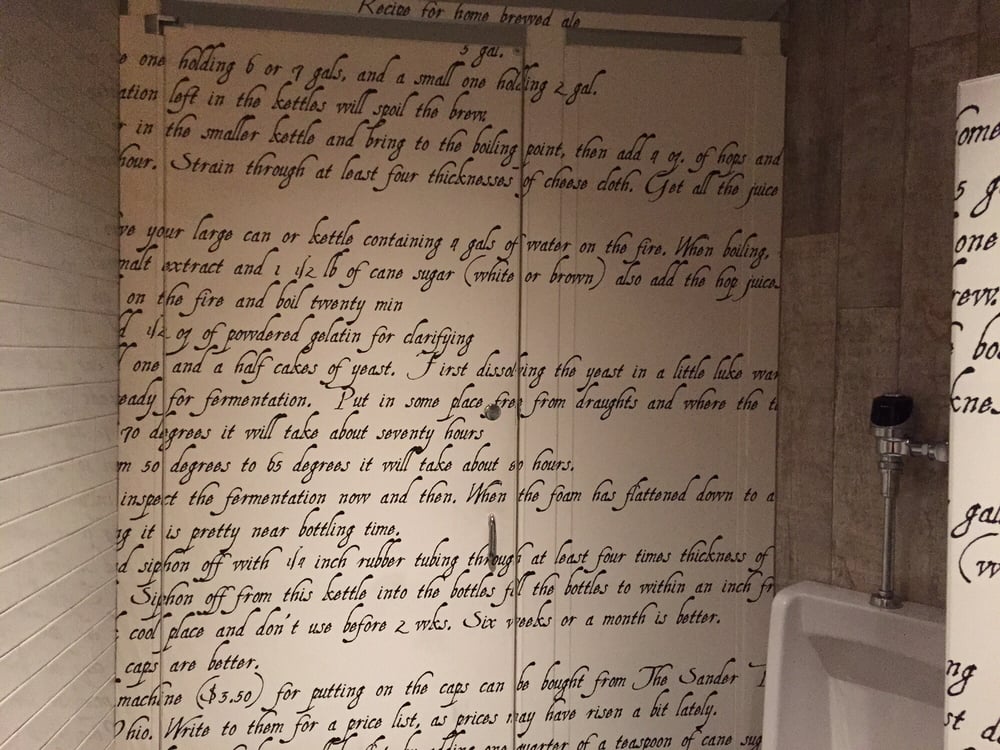 Recipe for home brewed ale
5 gal.
e one holding 6 or 7 gals, and a small one holding 2 gal.
ation left in the kettles will spoil the brew.
r in the smaller kettle and bring to the boiling point, then add 4 oz. of hops and
hour. Strain through at least four thicknesses of cheese cloth. Get all the juice
ve your large can or kettle containing 4 gals of water on the fire. When boiling,
malt extract and 1 1/2 lb of cane sugar (white or brown) also add the hop juice.
on the fire and boil twenty min
d 1/2 oz of powdered gelatin for clarifying
one and a half cakes of yeast. First dissolving the yeast in a little luke war
eady for fermentation. Put in some place free from draughts and where the t
70 degrees it will take about seventy hours
m 50 degrees to 65 degrees it will take about 60 hours.
inspect the fermentation now and then. When the foam has flattened down to a
ng it is pretty near bottling time.
d siphon off with 1/4 inch rubber tubing through at least four times thickness of
Siphon off from this kettle into the bottles fill the bottles to within an inch fr
cool place and don't use before 2 wks. Six weeks or a month is better.
caps are better.
machine ($3.50) for putting on the caps can be bought from The Sander T
Ohio. Write to them for a price list, as prices may have risen a bit lately.
by adding one quarter of a teaspoon of cane sug
ome
5 g
one
rew.
bo
knes
gal
(w
ng
st d